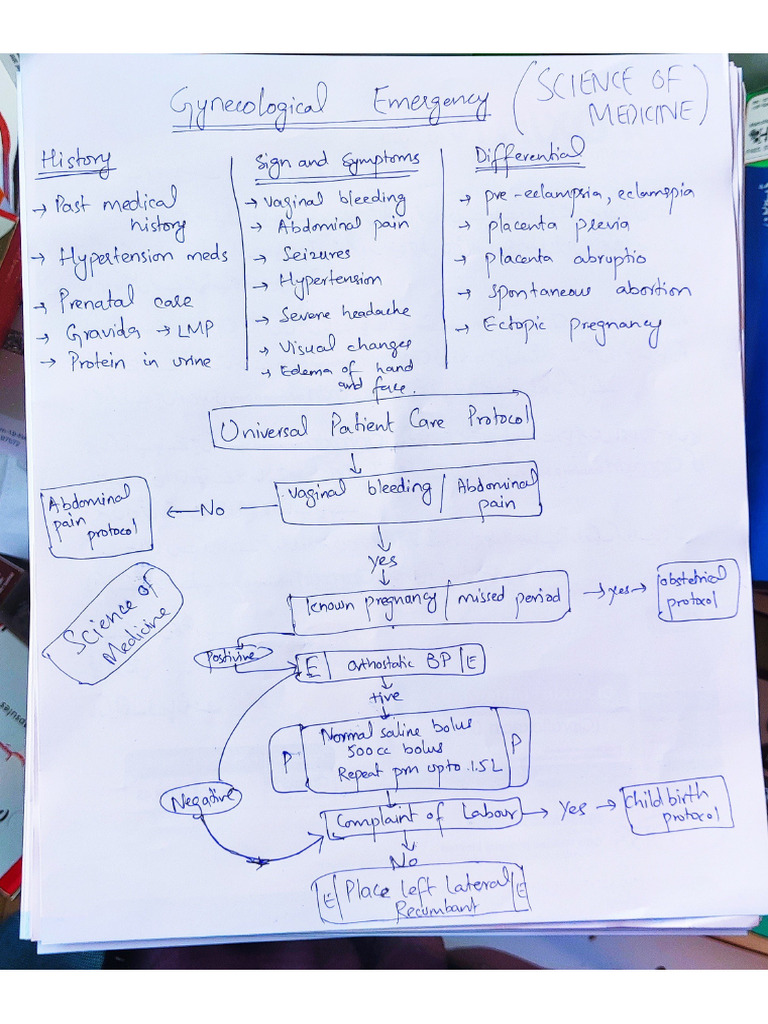 Gynecological Emergency (SCIENCE OF
MEDICINE)
History
→ Past medical
history
→ Hypertension meds
→ Prenatal case
→ Gravida → LMP
→ Protein in urine
Sign and Symptoms
→ Vaginal bleeding
→ Abdominal pain
→ Seizures
→ Hypertension
→ Severe headache
→ Visual changes
→ Edema of hand
and face.
Differential
→ pre-eclampsia, eclamspia
→ placenta previa
→ placenta abruptio
→ spontaneous abortion
→ Ectopic pregnancy
Universal Patient Care Protocol
Vaginal bleeding / Abdominal
pain
No
Abdominal
pain
protocol
yes
known pregnancy / missed period
→ yes →
obstetrical
protocol
Science of
Medicine
Positivive
E orthostatic BP E
+ive
P
Normal saline bolus
500 cc bolus
Repeat prn upto 1.5L
P
Negative
Complaint of Labour
→ Yes →
childbirth
protocol
No
E Place left lateral E
Recumbant